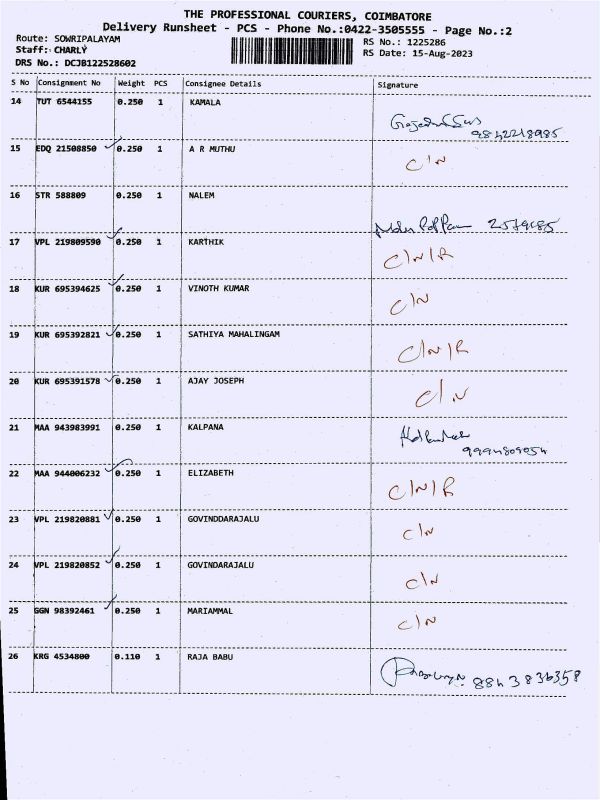 THE PROFESSIONAL COURIERS, COIMBATORE
Delivery Runsheet - PCS - Phone No.:0422-3505555 - Page No.:2
Route: SOWRIPALAYAM
RS No.: 1225286
Staff: CHARLY
RS Date: 15-Aug-2023
DRS No.: DCJB122528602
S No Consignment No Weight PCS Consignee Details Signature
14 TUT 6544155 0.250 1 KAMALA
9842218985
15 EDQ 21508850 0.250 1 A R MUTHU C/N
16 STR 588809 0.250 1 NALEM
2579685
17 VPL 219809590 0.250 1 KARTHIK C/N/R
18 KUR 695394625 0.250 1 VINOTH KUMAR C/N
19 KUR 695392821 0.250 1 SATHIYA MAHALINGAM C/N/R
20 KUR 695391578 0.250 1 AJAY JOSEPH C/N
21 MAA 943983991 0.250 1 KALPANA
9994809054
22 MAA 944006232 0.250 1 ELIZABETH C/N/R
23 VPL 219820881 0.250 1 GOVINDDARAJALU C/N
24 VPL 219820852 0.250 1 GOVINDARAJALU C/N
25 GGN 98392461 0.250 1 MARIAMMAL C/N
26 KRG 4534800 0.110 1 RAJA BABU 8843836358